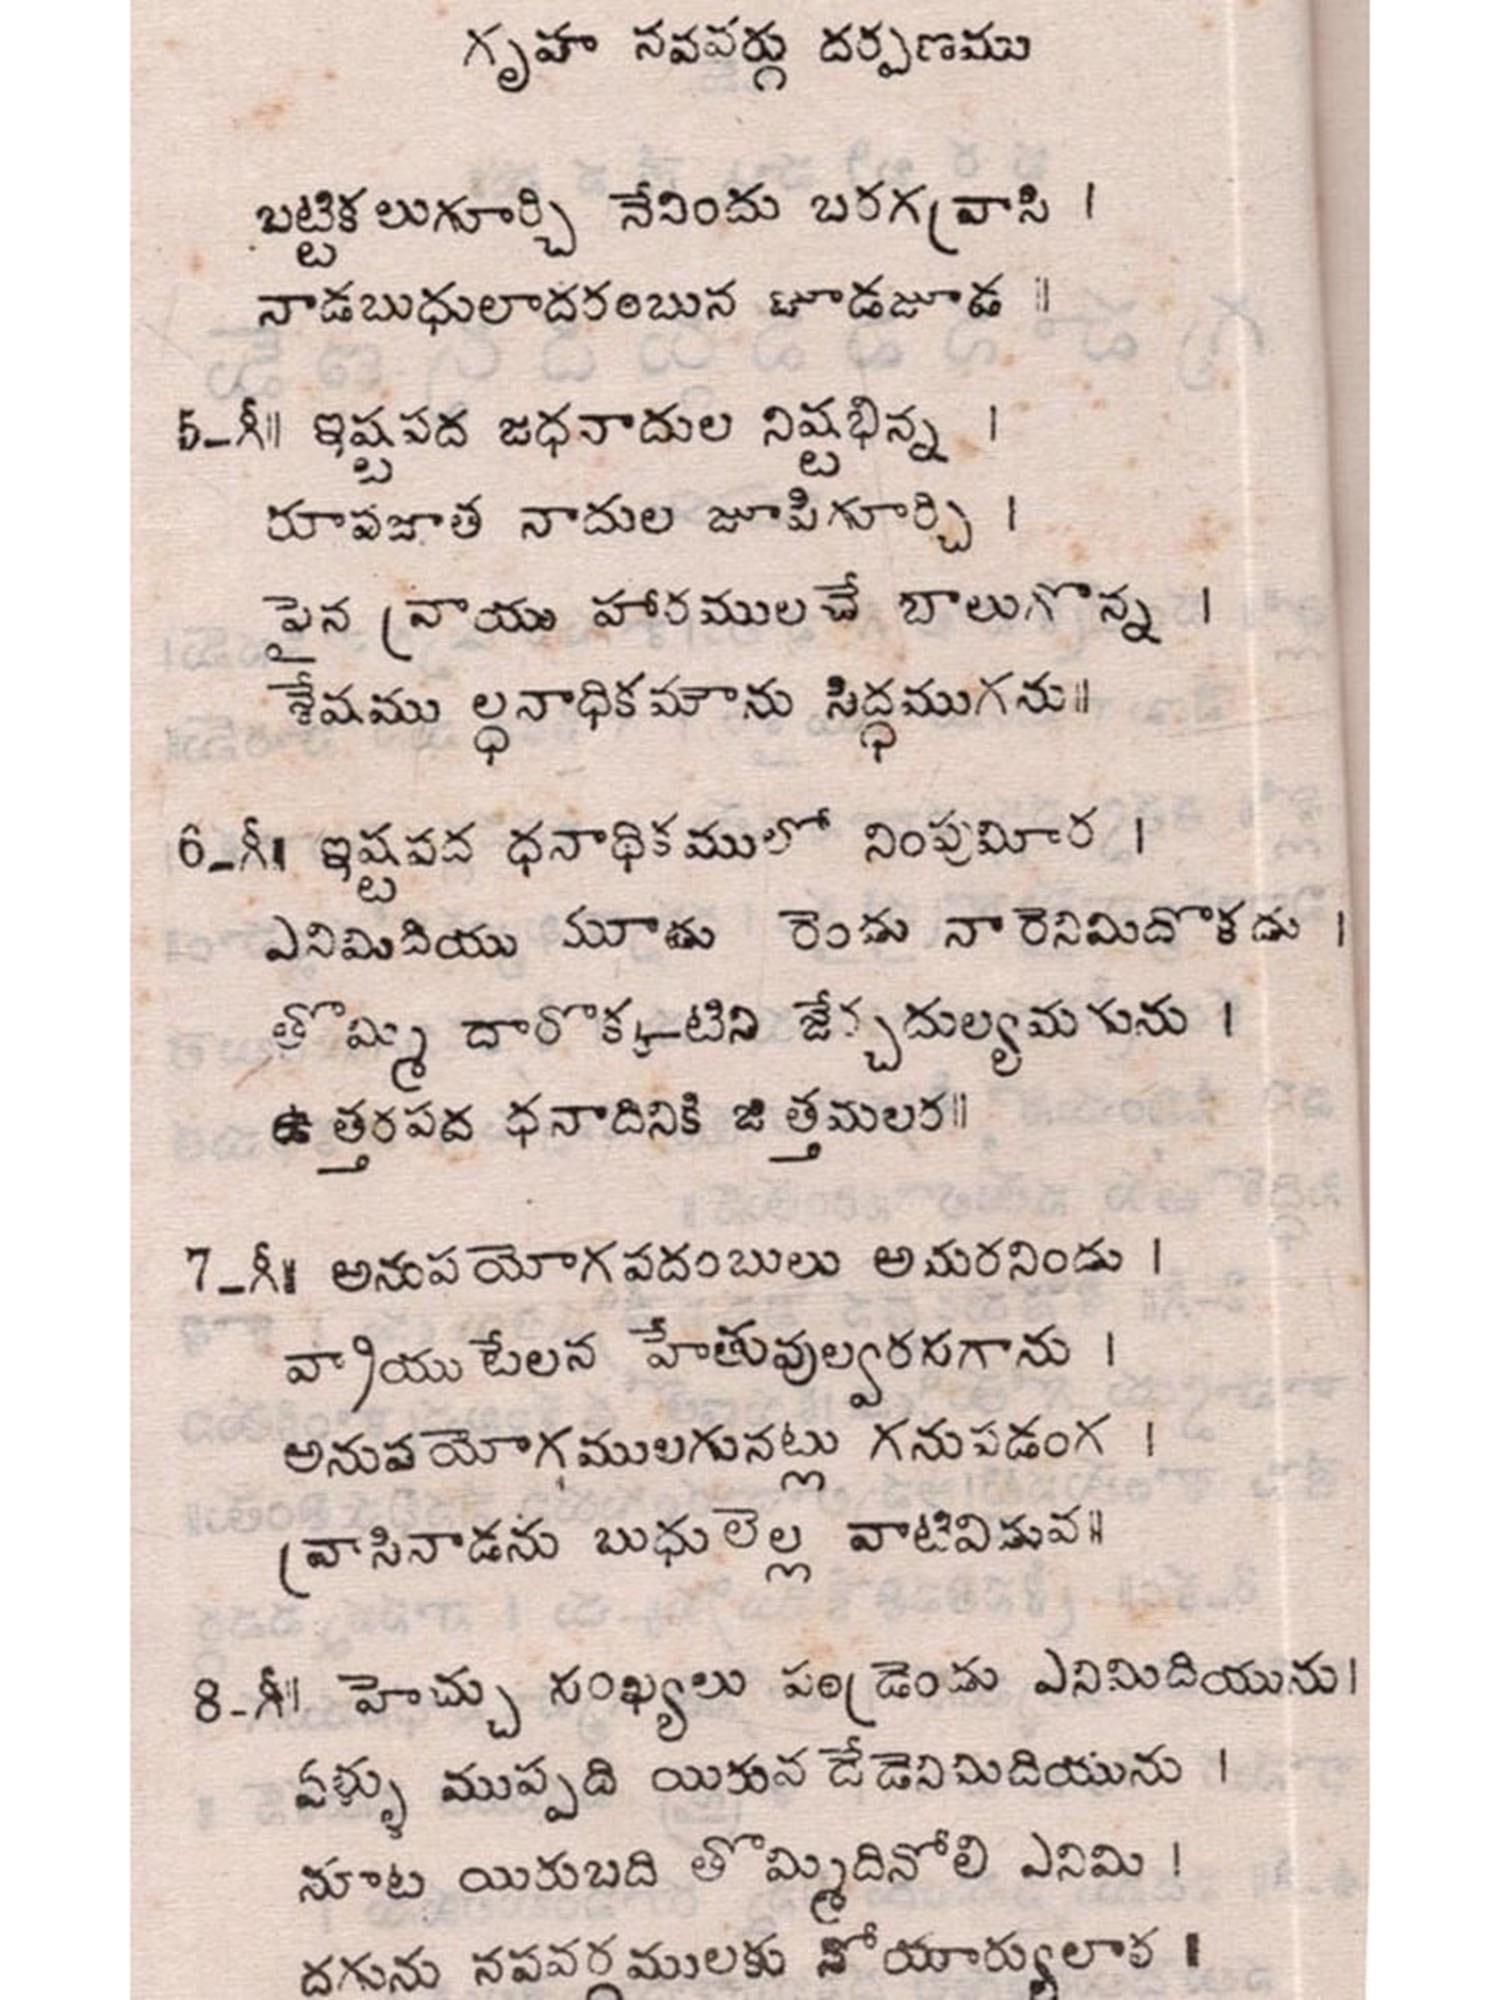 గృహ నవవర్గు దర్పణము
బట్టికలుగూర్చి నేనిందు బరగవ్రాసి ।
నాడబుధులాదరంబున జూడజూడ ॥
5-గీ॥ ఇష్టపద జధనాదుల నిష్టభిన్న ।
రూపజాత నాదుల జూపిగూర్చి ।
పైన వ్రాయు హారములచే బాలుగొన్న ।
శేషము ల్ధనాధికమౌను సిద్ధముగను॥
6-గీ॥ ఇష్టపద ధనాధికములో నింపుమీర ।
ఎనిమిదియు మూడు రెండు నారెనిమిదొకడు ।
తొమ్మి దారొక్కటిని జేర్చదుల్యమగును ।
ఉత్తరపద ధనాదినికి జిత్తమలర॥
7-గీ॥ అనుపయోగపదంబులు అమరనిండు ।
వ్రాియుటేలన హేతువుల్వరసగాను ।
అనుపయోగములగునట్లు గనుపడంగ ।
వ్రాసినాడను బుధులెల్ల వాటివిడువ॥
8-గీ॥ హెచ్చు సంఖ్యలు పండ్రెండు ఎనిమిదియును।
ఏళ్ళు ముప్పది యిరువ దేడెనిమిదియును ।
నూట యిరుబది తొమ్మిదినోలి ఎనిమి ।
దగును నపవర్గములకు నోయార్యులార ।